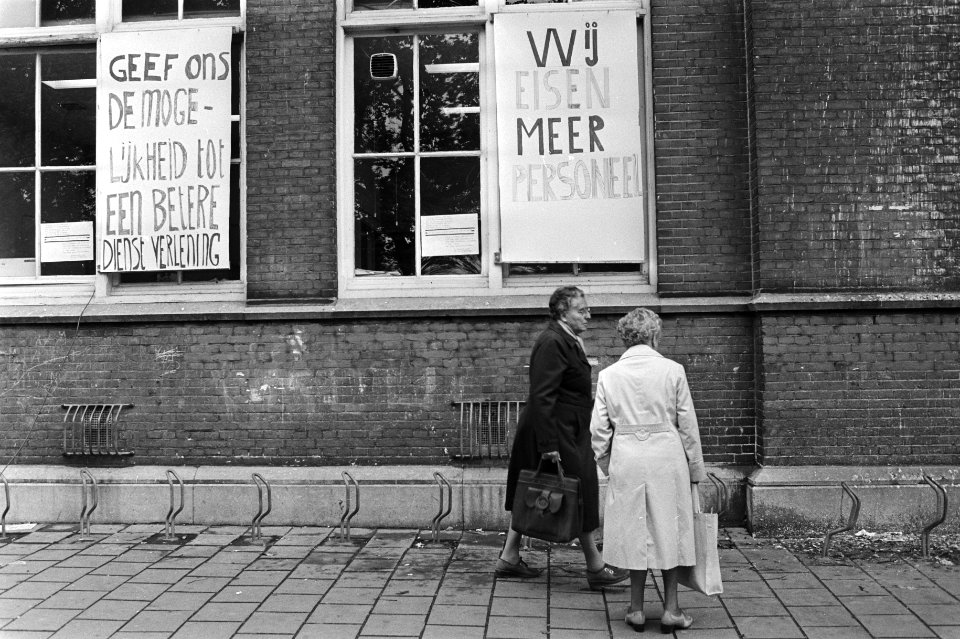 GEEF ONS
DE MOGE-
LIJKHEID tot
EEN BETERE
DIENST VERLENING
WIJ
EISEN
MEER
PERSONEEL